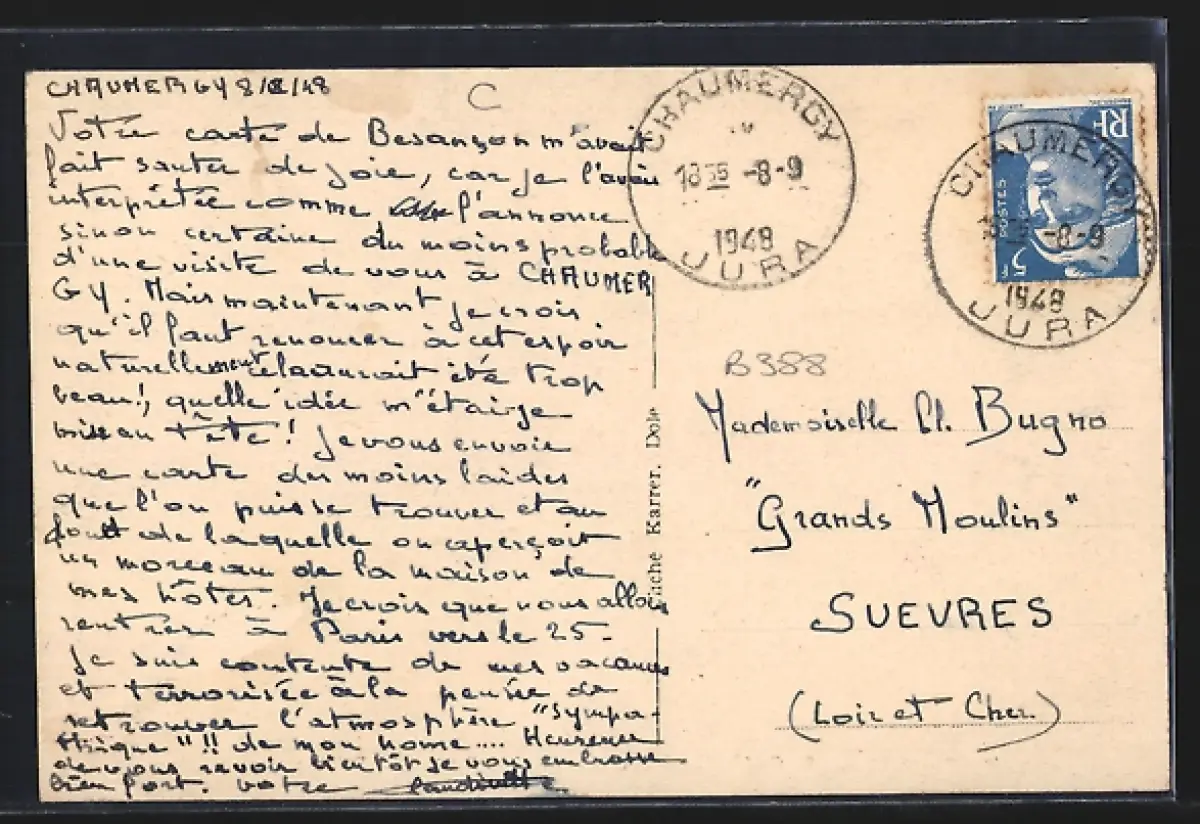 CHAUMERGY 8/8/48
Votre carte de Besançon m'avait
fait sauter de joie, car je l'avais
interprétée comme l'annonce
sinon certaine du moins probable
d'une visite de vous à CHAUMER
GY. Mais maintenant je crois
qu'il faut renoncer à cet espoir
naturellement cela aurait été trop
beau!, quelle idée m'étais-je
mise en tête! Je vous envoie
une carte des moins laides
que l'on puisse trouver et au
fond de laquelle on aperçoit
un morceau de la maison de
mes hôtes. Je crois que nous allons
rentrer à Paris vers le 25-
Je suis contente de mes vacances
et terrorisée à la pensée de
retrouver l'atmosphère "sympa-
thique"!! de mon home.... Heureuse
de vous revoir bientôt je vous embrasse
bien fort. votre
C
CHAUMERGY
18 35 -8-9
1948
JURA
RF
POSTES
5F
CHAUMERGY
-8-9
1948
JURA
B388
Karrer. Dole
Mademoiselle Cl. Bugno
"Grands Moulins"
SUEVRES
(Loir et Cher.)